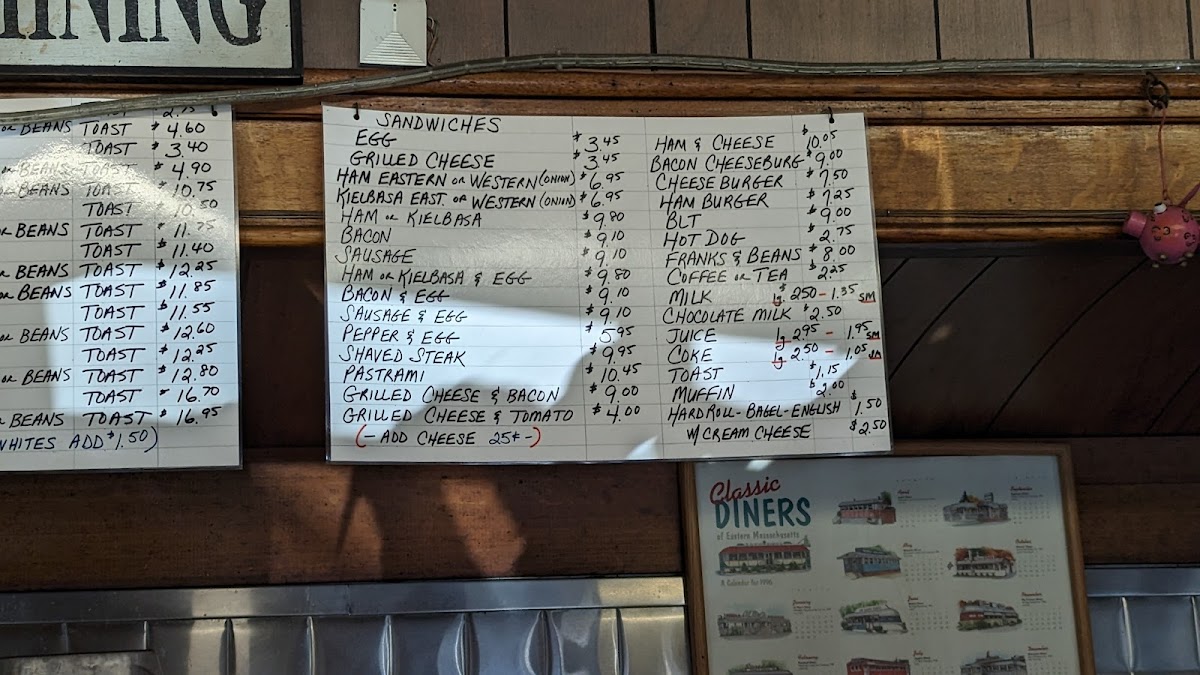 INING
2.75
or BEANS TOAST $4.60
TOAST $3.40
or BEANS TOAST $4.90
or BEANS TOAST $10.75
TOAST $10.50
or BEANS TOAST $11.75
TOAST $11.40
or BEANS TOAST $12.25
or BEANS TOAST $11.85
TOAST $11.55
or BEANS TOAST $12.60
TOAST $12.25
or BEANS TOAST $12.80
TOAST $16.70
or BEANS TOAST $16.95
WHITES ADD $1.50)
SANDWICHES
EGG $3.45
GRILLED CHEESE $3.45
HAM EASTERN or WESTERN (ONION) $6.95
KIELBASA EAST. or WESTERN (ONION) $6.95
HAM or KIELBASA $9.80
BACON $9.10
SAUSAGE $9.10
HAM or KIELBASA & EGG $9.80
BACON & EGG $9.10
SAUSAGE & EGG $9.10
PEPPER & EGG $5.95
SHAVED STEAK $9.95
PASTRAMI $10.45
GRILLED CHEESE & BACON $9.00
GRILLED CHEESE & TOMATO $4.00
(- ADD CHEESE 25¢ -)
HAM & CHEESE $10.05
BACON CHEESEBURG $9.00
CHEESE BURGER $7.50
HAM BURGER $7.25
BLT $9.00
HOT DOG $2.75
FRANKS & BEANS $8.00
COFFEE or TEA $2.25
MILK lg $250 - 1.35 SM
CHOCOLATE MILK $2.50
JUICE lg 2.95 - 1.95 SM
COKE lg 2.50 - 1.05 SM
TOAST $1.15
MUFFIN $2.00
HARDROLL-BAGEL-ENGLISH $1.50
W/ CREAM CHEESE $2.50
Classic
DINERS
of Eastern Massachusetts
A Calendar for 1996